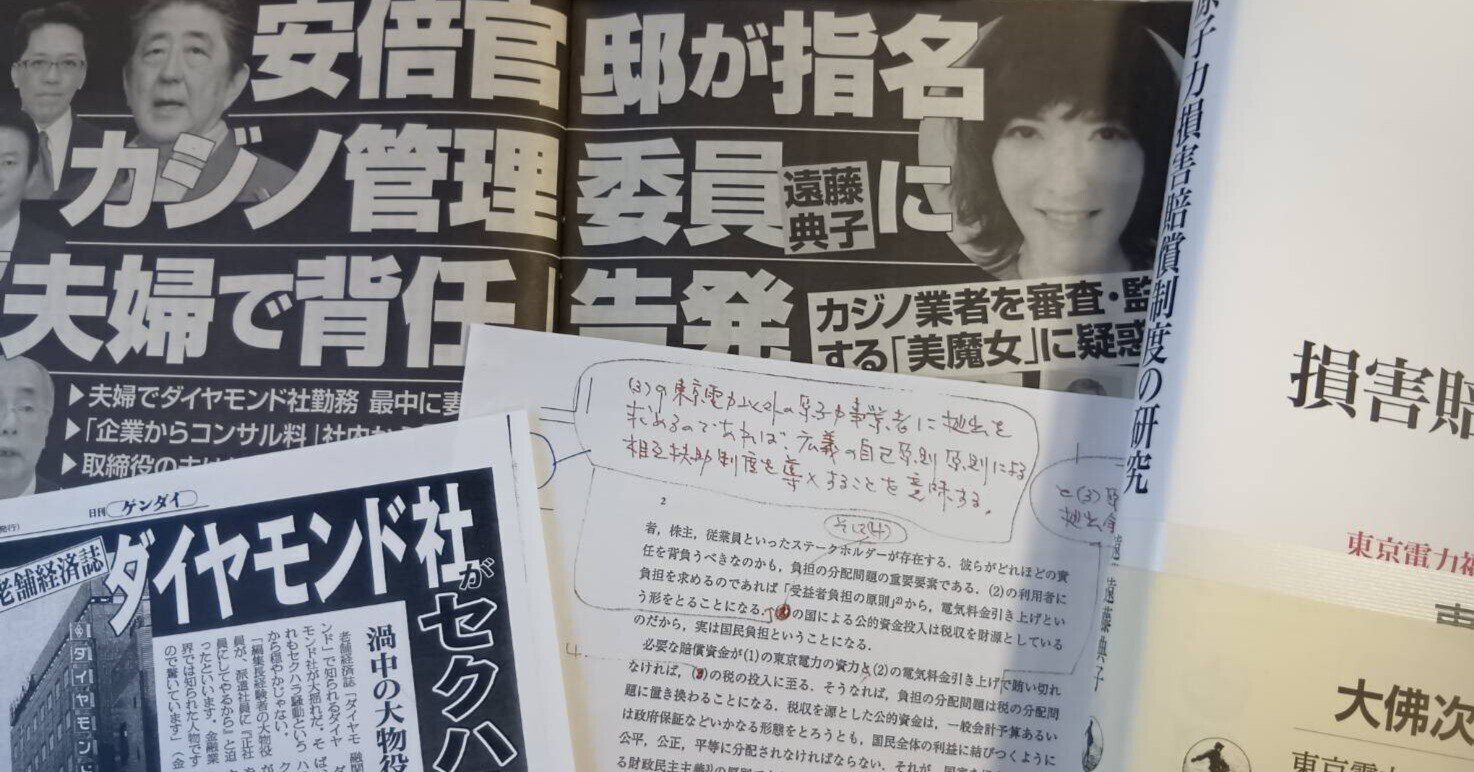 安倍官邸が指名
カジノ管理委員に
遠藤
典子
夫婦で背任告発
カジノ業者を審査・監
する「美魔女」に疑惑
▶夫婦でダイヤモンド社勤務 最中に妻
▶「企業からコンサル料」社内から
▶取締役の夫は
日刊ゲンダイ
老舗経済誌
ダイヤモンド社がセクハ
渦中の大物役
老舗経済誌「ダイヤモ
ンド」で知られるダイヤ
モンド社が大揺れだ。そ
れもセクハラ騒動という
から穏やかじゃない。
「編集長経験者の大物役
員が、派遣社員に『正社
員にしてやるから』と迫
ったといいます。金融業
界では知られた人物です
ので驚いています」(金
ダイヤモン
(3)の東京電力以外の原子力事業者に拠出を
求めるのであれば、広義の自己原則原則による
相互扶助制度を導入することを意味する。
と(3)原
拠出金
2
そして(4)
者，株主，従業員といったステークホルダーが存在する．彼らがどれほどの責
任を背負うべきなのかも，負担の分配問題の重要要素である．(2)の利用者に
負担を求めるのであれば「受益者負担の原則」2)から，電気料金引き上げとい
う形をとることになる．の国による公的資金投入は税収を財源としている
のだから，実は国民負担ということになる．
必要な賠償資金が(1)の東京電力の資力と(2)の電気料金引き上げで賄い切れ
なければ，(3)の税の投入に至る．そうなれば，負担の分配問題は税の分配問
題に置き換わることになる．税収を源とした公的資金は，一般会計予算あるい
は政府保証などいかなる形態をとろうとも，国民全体の利益に結びつくように
公平，公正，平等に分配されなければならない．それが，国家を
る財政民主主義3)の原則で
4.
原子力損害賠償制度の研究
遠藤典子
損害賠
東京電力福
大佛次
東京電力